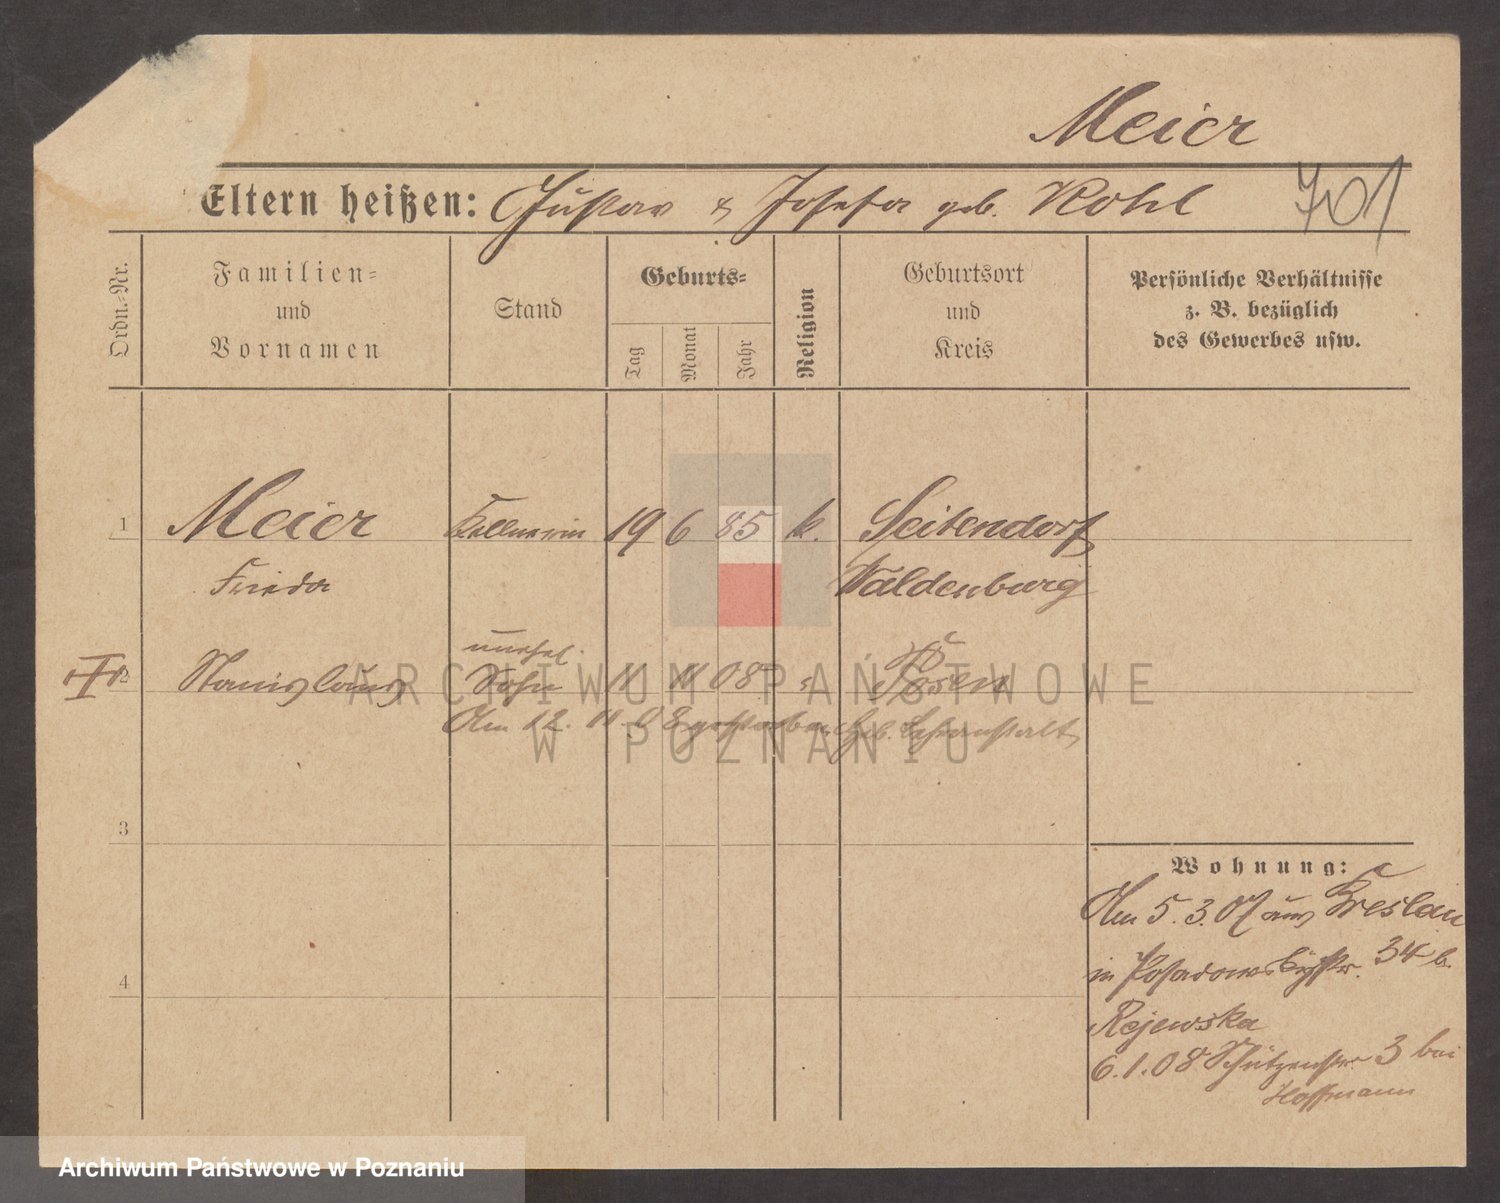 Meier
Eltern heißen: Gustav & Josefa geb. Kohl
701
Ordn.-Nr.
Familien-
und
Vornamen
Stand
Geburts-
Tag
Monat
Jahr
Religion
Geburtsort
und
Kreis
Persönliche Verhältnisse
z. B. bezüglich
des Gewerbes usw.
1 Meier Kellnerin 19 6 85 k. Seitendorf
Frieda Waldenburg
unehel.
2 Stanislaus Sohn 11 11 08 Posen
Am 12. 11. 08 gestorben Geb. Lehranstalt
ARCHIWUM PAŃSTWOWE
W POZNANIU
3
4
Wohnung:
Am 5. 3. 07 aus Breslau
in Posadowskystr. 34 b.
Rejewska
6.1.08 Schützenstr 3 bei
Hoffmann
Archiwum Państwowe w Poznaniu